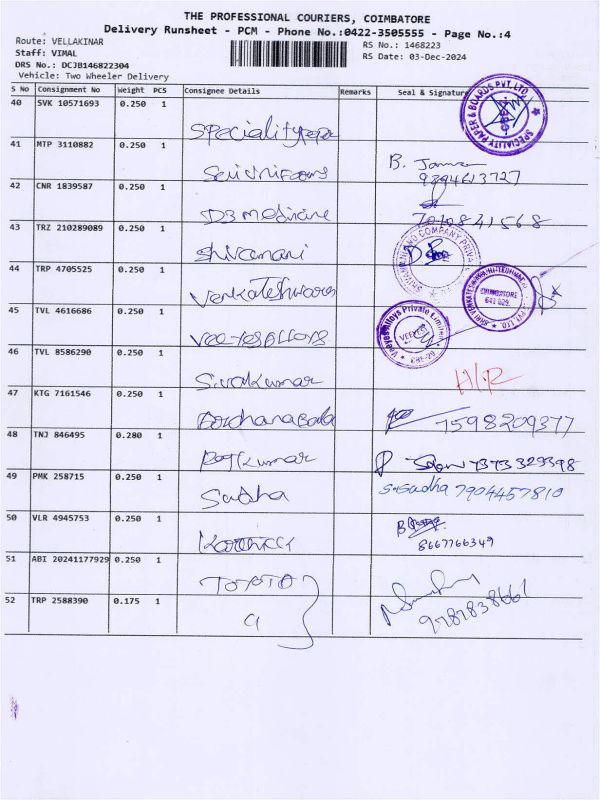 THE PROFESSIONAL COURIERS, COIMBATORE
Delivery Runsheet - PCM - Phone No.:0422-3505555 - Page No.:4
Route: VELLAKINAR
RS No.: 1468223
Staff: VIMAL
RS Date: 03-Dec-2024
DRS No.: DCJB146822304
Vehicle: Two Wheeler Delivery
S No Consignment No Weight PCS Consignee Details Remarks Seal & Signature
40 SVK 10571693 0.250 1
SPECIALITY PAPER & BOARDS PVT. LTD.
Speciality
41 MTP 3110882 0.250 1
B.
9394613727
42 CNR 1839587 0.250 1
D3 medicine
7010841568
43 TRZ 210289089 0.250 1
Shivamani
44 TRP 4705525 0.250 1
COIMBATORE
641 029.
Venkateshwara
45 TVL 4616686 0.250 1
Veeyes Alloys Private Limited
VEEYES
CBE-29
46 TVL 8586290 0.250 1
Sivakumar
H/R
47 KTG 7161546 0.250 1
7598209377
48 TNJ 846495 0.280 1
Rajkumar
7373329398
49 PMK 258715 0.250 1
Sudha
S.Sudha 7904457810
50 VLR 4945753 0.250 1
Karthick
8667766349
51 ABI 20241177929 0.250 1
52 TRP 2588390 0.175 1
9787838661